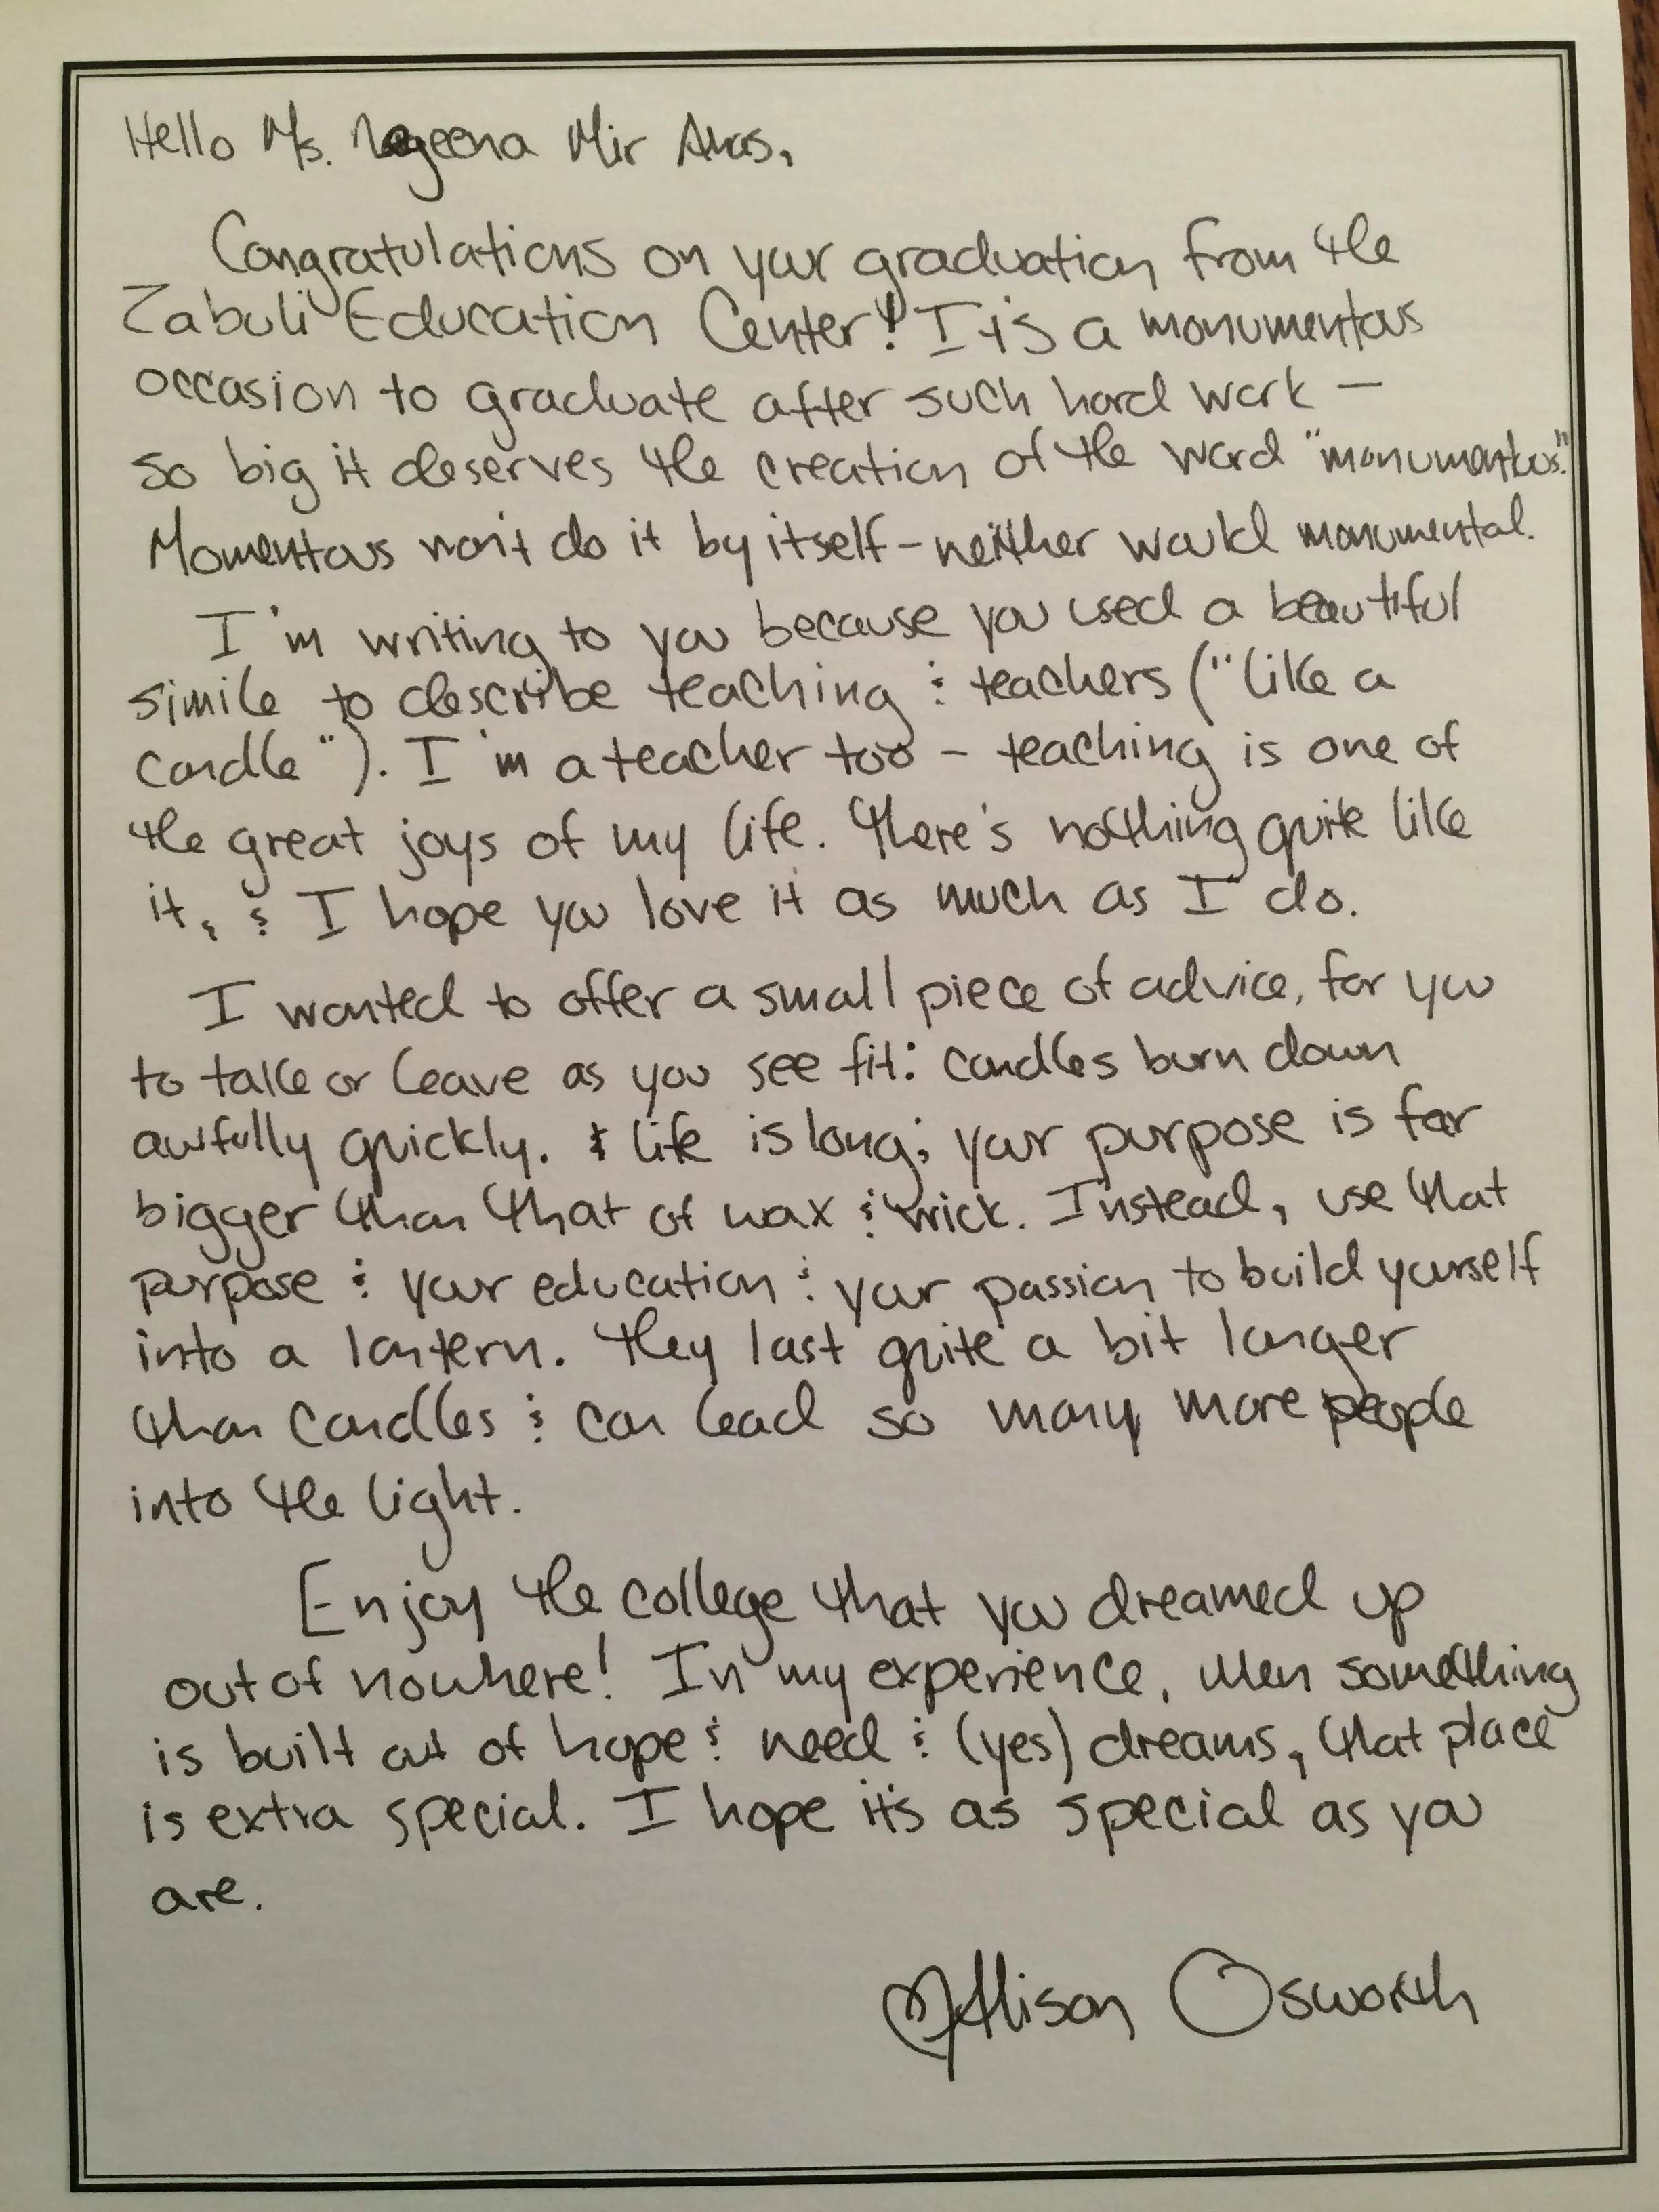 Hello Ms. Nageena Mir
Congratulations on your graduation from the
Zabuli Education Center! It is a monumentous
occasion to graduate after such hard work —
so big it deserves the creation of the word "monumentous."
Momentous won't do it by itself - neither would monumental.
I'm writing to you because you used a beautiful
simile to describe teaching & teachers ("like a
candle"). I'm a teacher too - teaching is one of
the great joys of my life. There's nothing quite like
it, & I hope you love it as much as I do.
I wanted to offer a small piece of advice, for you
to take or leave as you see fit: candles burn down
awfully quickly. & life is long; your purpose is far
bigger than that of wax & wick. Instead, use that
purpose & your education & your passion to build yourself
into a lantern. They last quite a bit longer
than candles & can lead so many more people
into the light.
Enjoy the college that you dreamed up
out of nowhere! In my experience, when something
is built out of hope & need & (yes) dreams, that place
is extra special. I hope it's as special as you
are.
♡ Allison Osworth